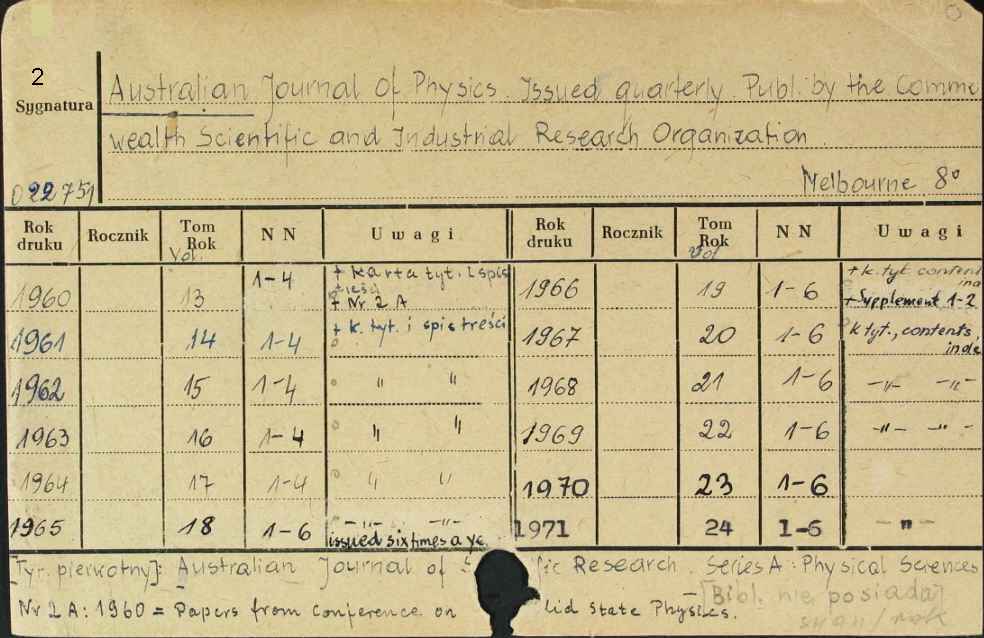 2
Sygnatura
Australian Journal of Physics. Issued quarterly. Publ. by the Commo
wealth Scientific and Industrial Research Organization.
022751
Melbourne 8°
Rok druku Rocznik Tom Rok Vol. NN Uwagi Rok druku Rocznik Tom Rok Vol NN Uwagi
1960 13 1-4 + karta tyt. i spis treści + Nr 2 A 1966 19 1-6 + k. tyt. content + Supplement 1-2
1961 14 1-4 + k. tyt. i spis treści 1967 20 1-6 k tyt., contents, inde
1962 15 1-4 " " 1968 21 1-6 -"- -"-
1963 16 1-4 " " 1969 22 1-6 -"- -"-
1964 17 1-4 " " 1970 23 1-6
1965 18 1-6 -"- -"- issued six times a ye 1971 24 1-6 -"-
[Tyt. pierwotny]: Australian Journal of S fic Research. Series A: Physical Sciences
Nr 2 A: 1960 = Papers from Conference on lid State Physics. - [Bibl. nie posiada]